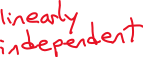 linearly
independent